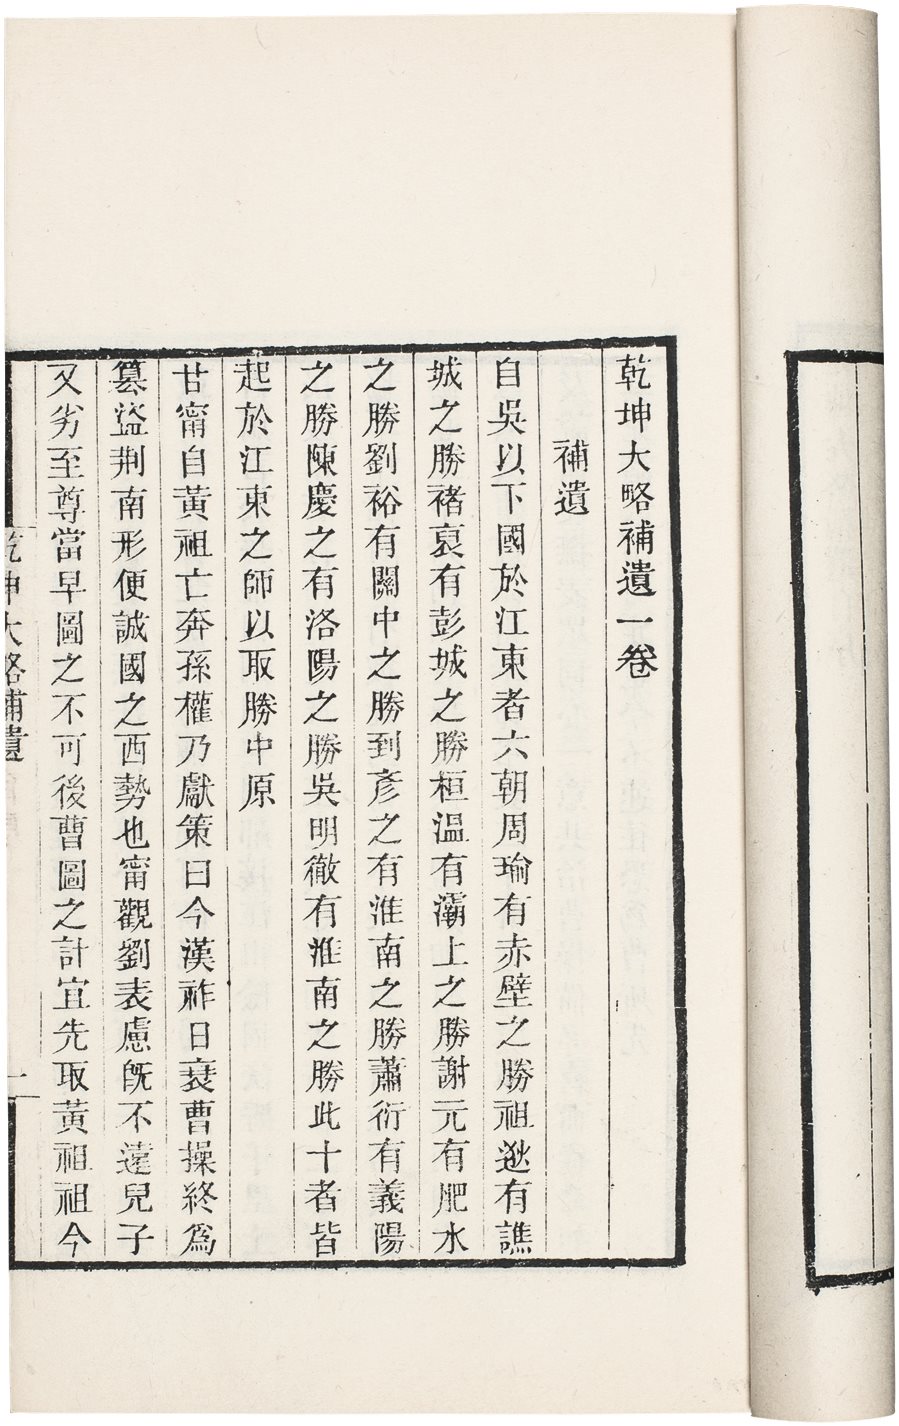 乾坤大略補遺一卷
補遺
自吳以下國於江東者六朝周瑜有赤壁之勝祖逖有譙
城之勝褚裒有彭城之勝桓溫有灞上之勝謝元有肥水
之勝劉裕有關中之勝到彥之有淮南之勝蕭衍有義陽
之勝陳慶之有洛陽之勝吳明徹有淮南之勝此十者皆
起於江東之師以取勝中原
甘甯自黃祖亡奔孫權乃獻策曰今漢祚日衰曹操終爲
篡盜荆南形便誠國之西勢也甯觀劉表慮旣不遠兒子
又劣至尊當早圖之不可後曹圖之計宜先取黃祖祖今
乾坤大略補遺
一